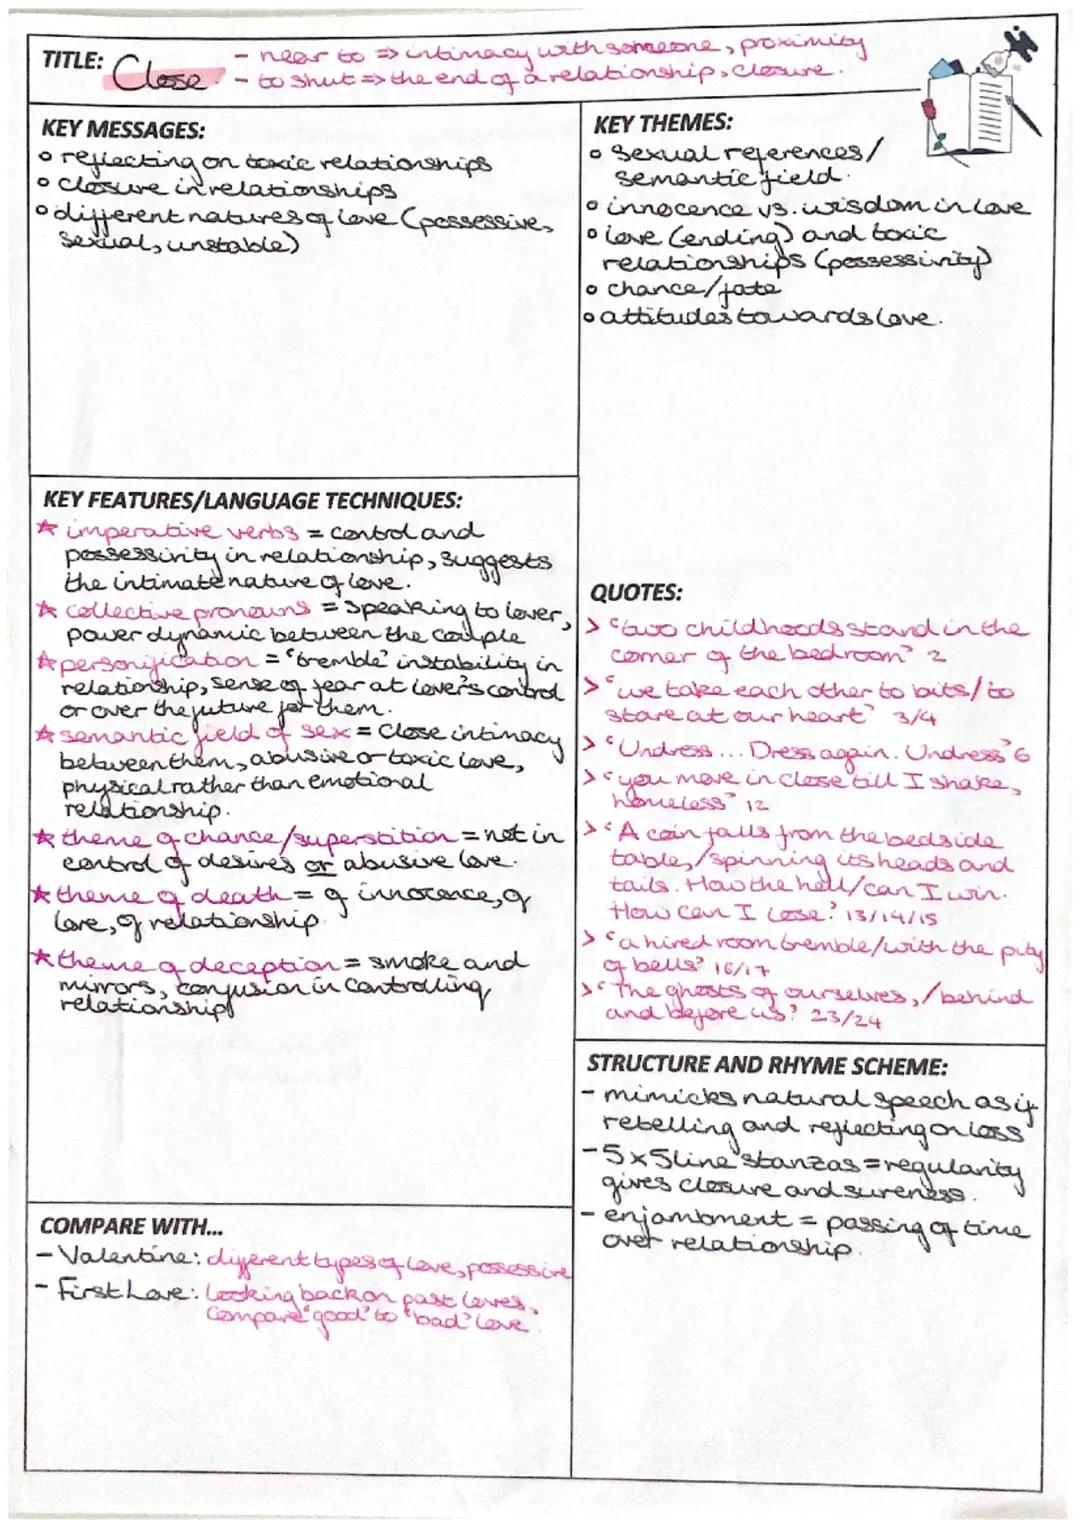 TITLE: Close.
- near to => intimacy with someone, proximity
- to shut => the end of a relationship, closure.
KEY MESSAGES:
o reflecting on toxic relationships
o closure in relationships
o different natures of love (possessive,
sexual, unstable)
KEY THEMES:
o sexual references/
semantic field.
o innocence vs. wisdom in love
o love (ending) and toxic
relationships (possessivity)
o chance/fate
o attitudes towards love.
KEY FEATURES/LANGUAGE TECHNIQUES:
☆ imperative verbs = control and
possessivity in relationship, suggests
the intimate nature of love.
☆ collective pronouns = speaking to lover,
power dynamic between the couple
☆ personification = 'tremble' instability in
relationship, sense of fear at lover's control
or over the future for them.
☆ semantic field of sex = close intimacy
between them, abusive or toxic love,
physical rather than emotional
relationship.
☆ theme of chance/superstition = not in
control of desires or abusive love.
☆ theme of death = of innocence, of
love, of relationship.
☆ theme of deception = smoke and
mirrors, confusion in controlling
relationship
QUOTES:
> 'two childhoods stand in the
corner of the bedroom' 2
> 'we take each other to bits/to
stare at our heart' 3/4
> 'Undress ... Dress again. Undress' 6
> 'you move in close till I shake,
homeless' 12
> 'A coin falls from the bedside
table,/spinning its heads and
tails. How the hell/can I win.
How can I lose.' 13/14/15
> 'a hired room tremble/with the pity
of bells' 16/17
> 'The ghosts of ourselves,/behind
and before us' 23/24
STRUCTURE AND RHYME SCHEME:
- mimicks natural speech as if
rebelling and reflecting on loss
- 5x5 line stanzas = regularity
gives closure and sureness.
- enjambment = passing of time
over relationship.
COMPARE WITH...
- Valentine: different types of love, possessive
- First Love: looking back on past loves,
compare 'good' to 'bad' love